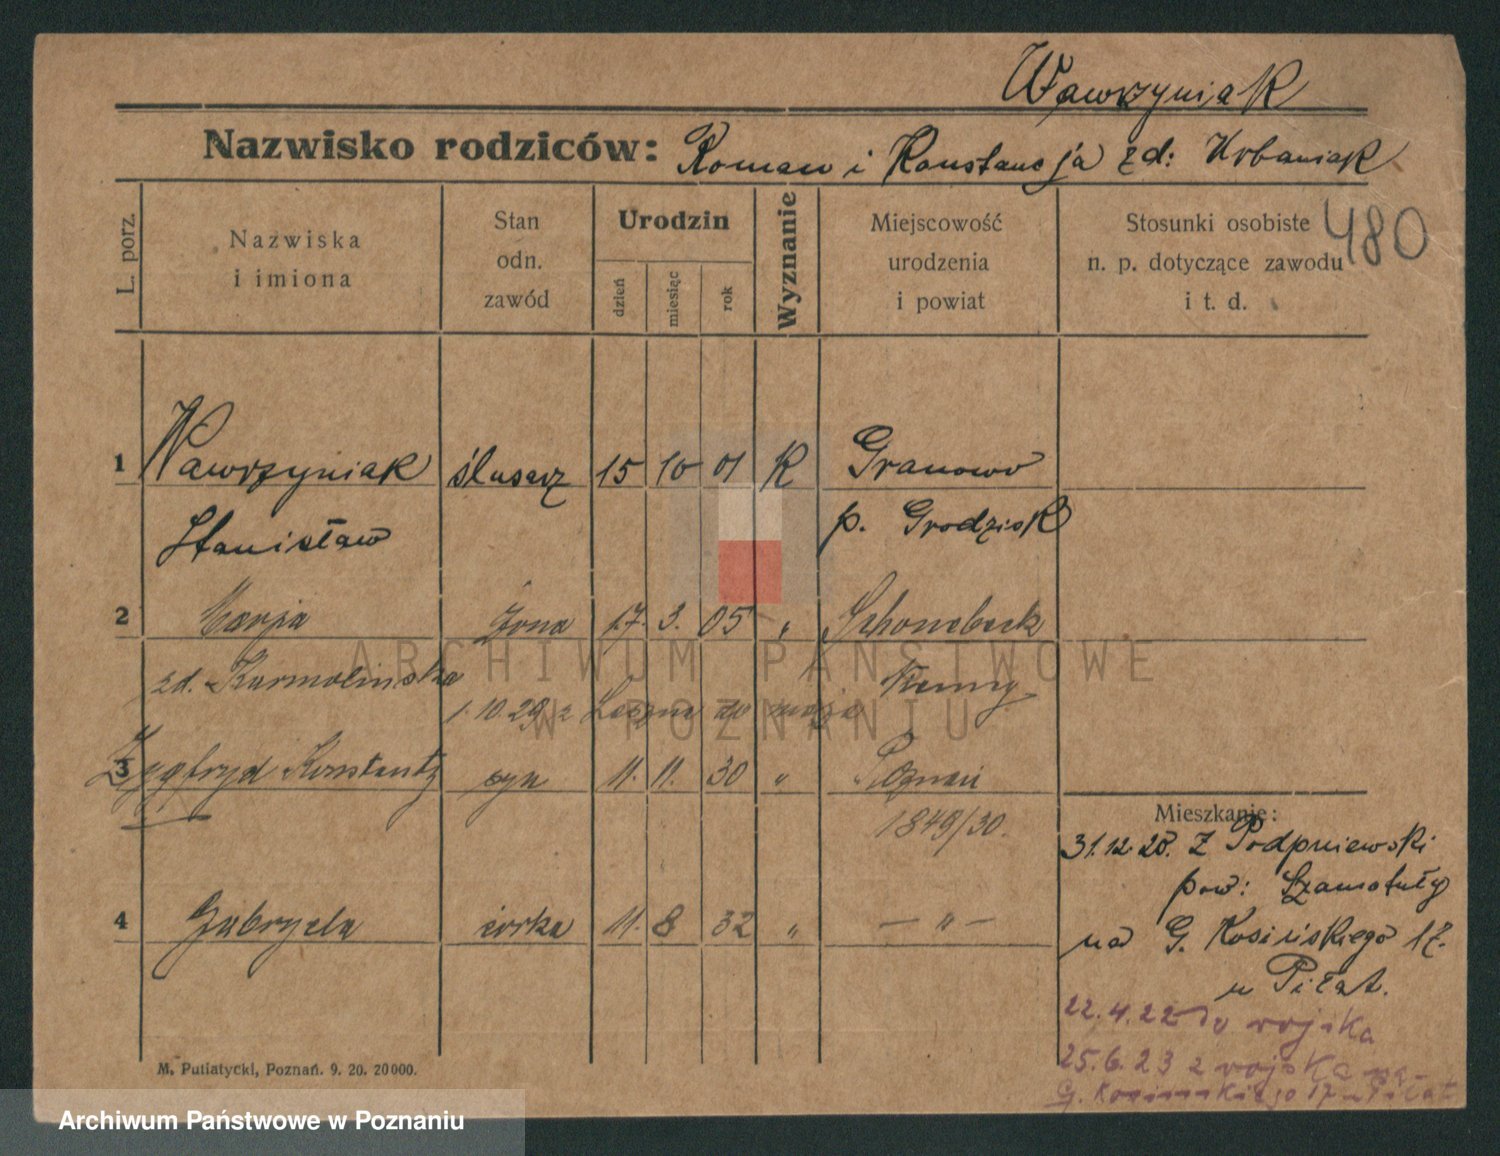 Wawrzyniak
Nazwisko rodziców: Roman i Konstancja zd: Urbaniak
480
L. porz.
Nazwiska
i imiona
Stan
odn.
zawód
Urodzin
dzień
miesiąc
rok
Wyznanie
Miejscowość
urodzenia
i powiat
Stosunki osobiste
n. p. dotyczące zawodu
i t. d.
1 Wawrzyniak ślusarz 15 10 01 K Granowo
Stanisław p. Grodzisk
2 Marja żona 17. 3. 05 " Schonebeck
zd. Karmolińska
1.10.29 z Leszna do męża
3 Zygfryd Konstanty syn 11. 11. 30 " Poznań
1849/30.
4 Gabryela córka 11. 8 32 " — " —
Mieszkanie:
31.12.20. Z Podpniewski
pow: Szamotuły
na G. Kosińskiego 17.
u Piłat.
22.4.22 do wojska
25.6.23 z wojska na
G. Kosińskiego 17 u Piłat
M. Putiatycki, Poznań. 9. 20. 20000.
ARCHIWUM PAŃSTWOWE
W POZNANIU
Archiwum Państwowe w Poznaniu